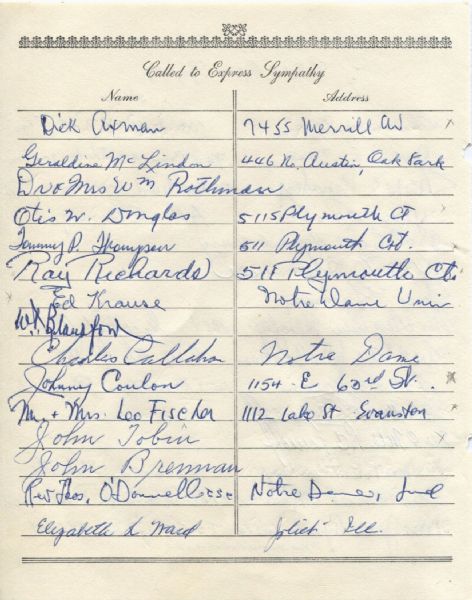 Called to Express Sympathy
Name Address
Dick Axman 7455 Merrill Av x
Geraldine McLindon 446 No. Austin, Oak Park
Dr & Mrs Wm Rothman
Otis W. Douglas 5115 Plymouth Ct
Tommy P. Thompson 511 Plymouth Crt.
Ray Richards 511 Plymouth Ct.
Ed Krause Notre Dame Univ
Charles Callahan Notre Dame
Johnny Coulon 1154 E 63rd St. x
Mr. + Mrs. Leo Fischer 1112 Lake St Evanston
John Tobin
John Brennan
Rev Thos. O'Donnell csc Notre Dame, Ind
Elizabeth L Ward Joliet Ill.